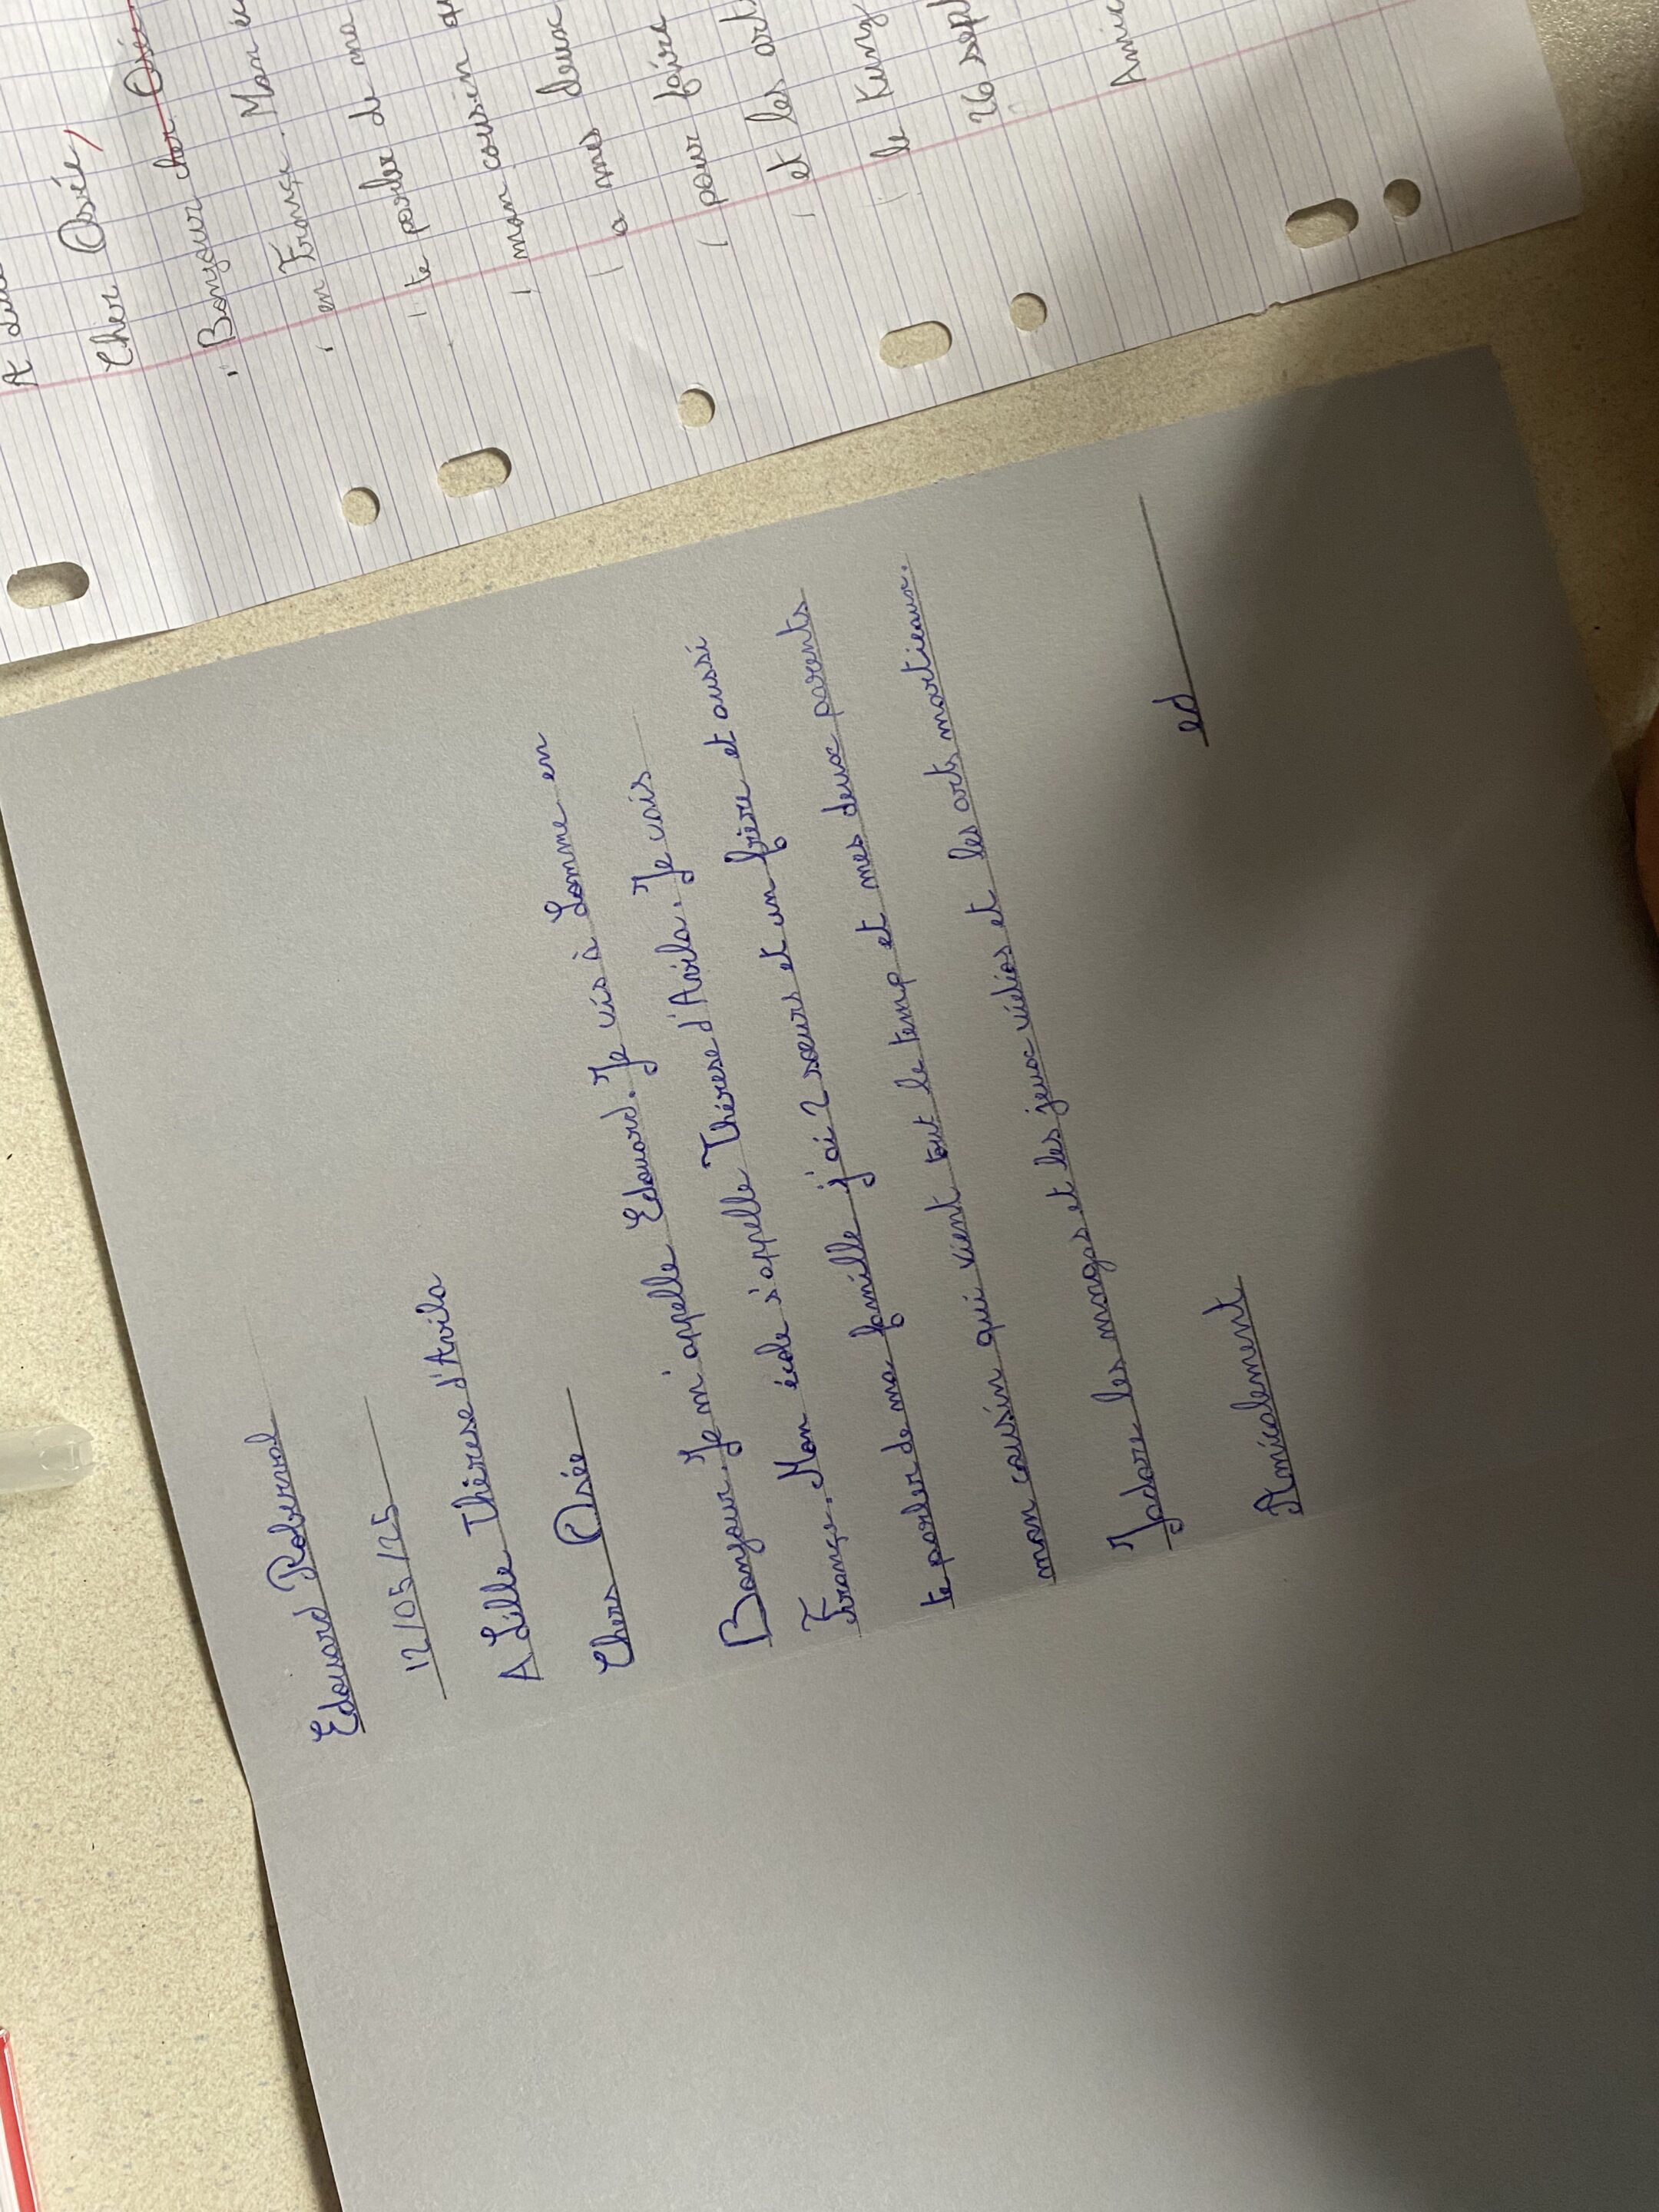 A
Cher Osée,
Bonjour cher Osée
en França. Mon
te parler de ma
mon cousin
a mes deux
pour faire
et les art
le Kung
26 sept
Amic
Edouard Roberval
12/05/25
A Lille Thérese d'Avila
Chers Osée
Bonjour. Je m'appelle Edouard. Je vis à Lomme en
França. Mon école s'appelle Thérese d'Avila. Je vais
te parler de ma famille j'ai 2 sœurs et un frère et aussi
mon cousin qui vient tout le temp et mes deux parents
Jadore les mangas et les jeux vidéos et les arts martieaux.
Amicalement
ed